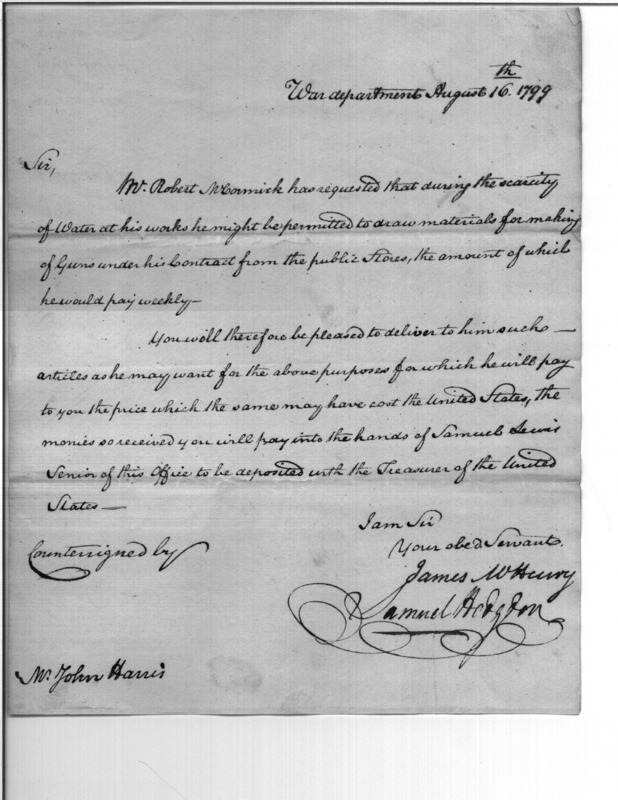 War department August 16th. 1799
Sir,
Mr. Robert McCormick has requested that during the scarcity
of Water at his works he might be permitted to draw materials for making
of Guns under his Contract from the public Stores, the amount of which
he would pay weekly—
You will therefore be pleased to deliver to him such—
articles as he may want for the above purposes for which he will pay
to you the price which the same may have cost the United States, the
monies so received you will pay into the hands of Samuel Lewis
Senior of this Office to be deposited with the Treasurer of the United
States—
I am Sir
Your obed Servant.
James McHenry
Countersigned by
Samuel Hodgdon
Mr. John Harris